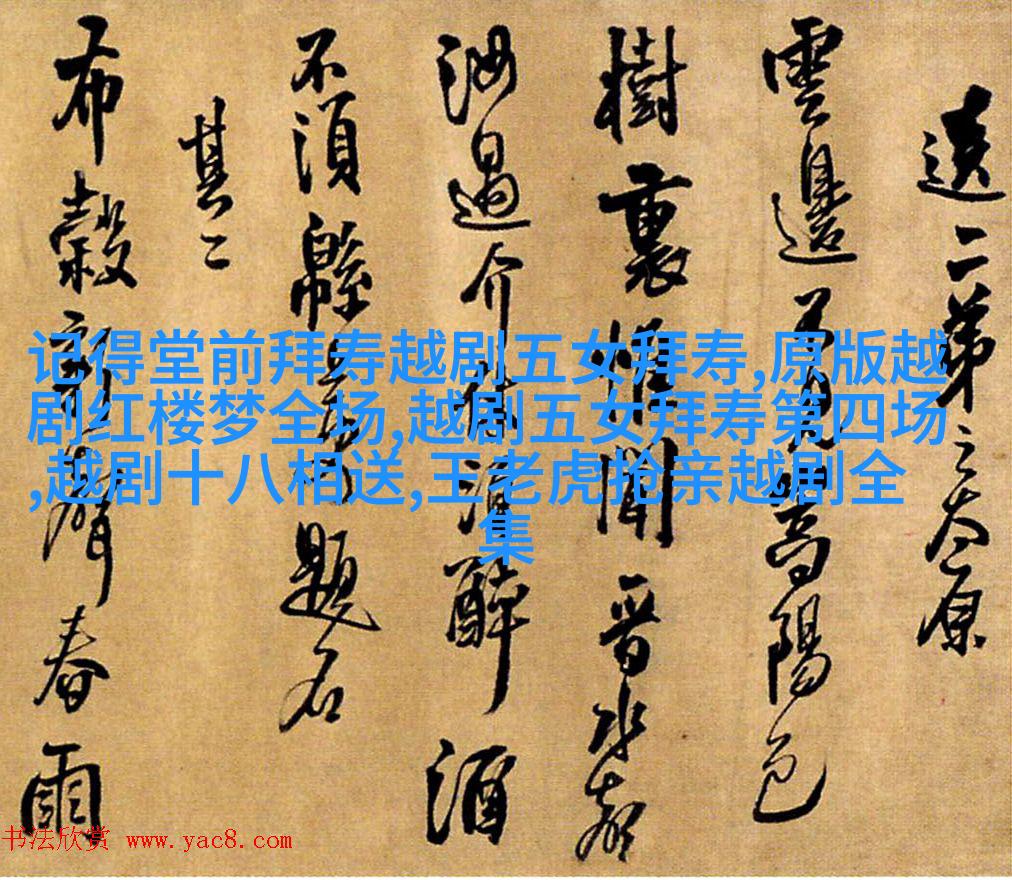 二弟之太原
雲邊陽色
樹裏惟聞晉水
汝過介休須醉酒
不須緜題名
其二
布穀新聲春雨
记得堂前拜寿越剧五女拜寿,原版越
剧红楼梦全场,越剧五女拜寿第四场
,越剧十八相送,王老虎抢亲越剧全
集
书法欣赏 www.yac8.com